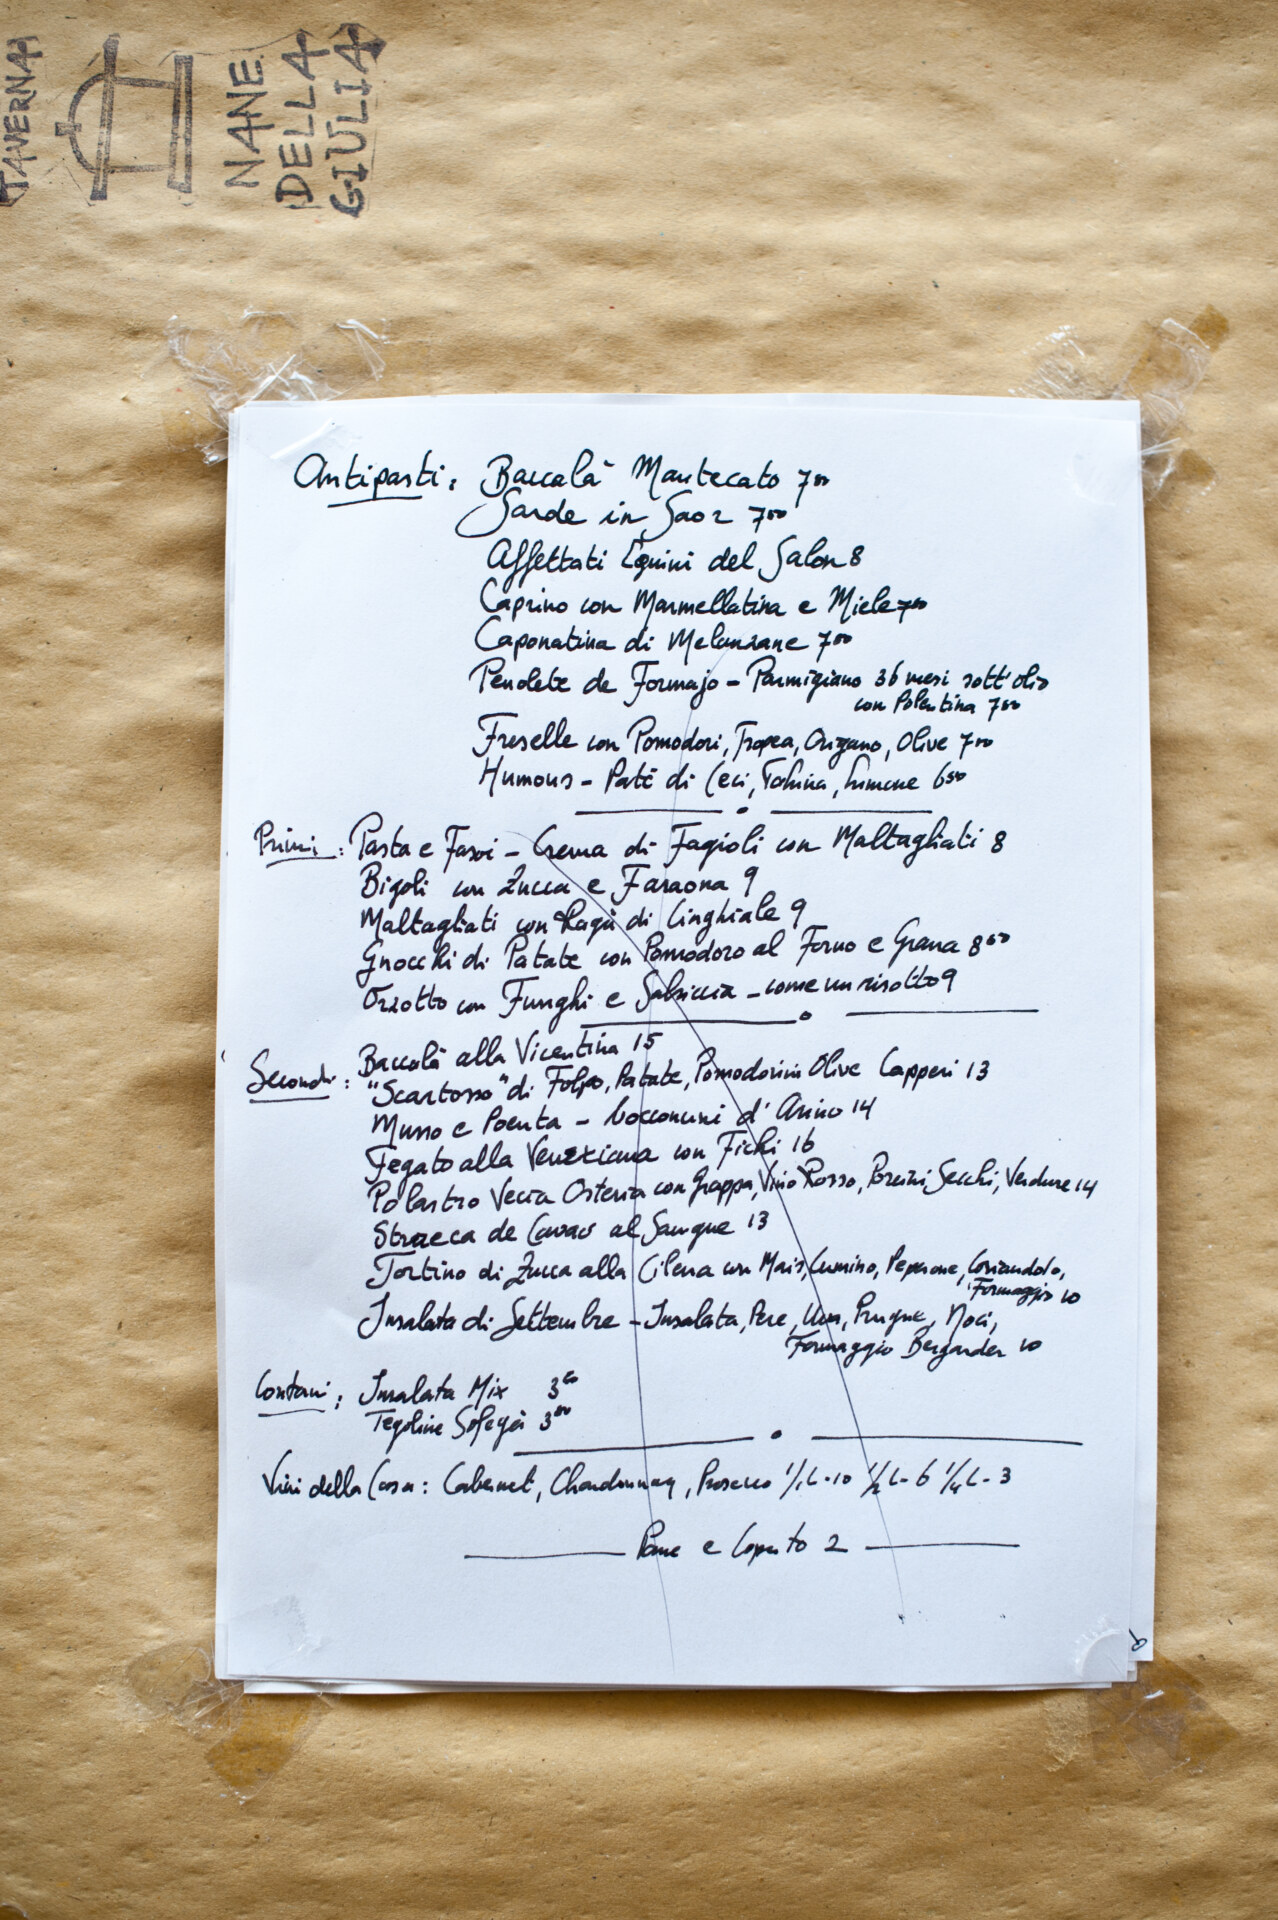 TAVERNA
NANE
DELLA
GIULIA
Antipasti: Baccalà Mantecato 7⁰⁰
Sarde in Saor 7⁵⁰
Affettati Equini del Salon 8
Caprino con Marmellatina e Miele 7⁰⁰
Caponatina di Melanzane 7⁰⁰
Pendete de Formajo - Parmigiano 36 mesi sott'olio
con Polentina 7⁰⁰
Freselle con Pomodori, Tropea, Origano, Olive 7⁰⁰
Humous - Patè di Ceci, Tahina, Limone 6⁵⁰
Primi: Pasta e Fasoi - Crema di Fagioli con Maltagliati 8
Bigoli con Zucca e Faraona 9
Maltagliati con Ragù di Cinghiale 9
Gnocchi di Patate con Pomodoro al Forno e Grana 8⁵⁰
Orzotto con Funghi e Salsiccia - come un risotto 9
Secondi: Baccalà alla Vicentina 15
"Scartosso" di Folpo, Patate, Pomodorini Olive Capperi 13
Musso e Poenta - bocconcini d'Asino 14
Fegato alla Veneziana con Fichi 16
Polastro Vecia Osteria con Grappa, Vino Rosso, Porcini Secchi, Verdure 14
Straeca de Cavao al Sangue 13
Tortino di Zucca alla Cilena con Mais, Cumino, Peperone, Coriandolo,
Formaggio 10
Insalata di Settembre - Insalata, Pere, Uva, Prugne, Noci,
Formaggio Bergader 10
Contorni: Insalata Mix 3⁵⁰
Tegoline Sofegà 3⁰⁰
Vini della Casa: Cabernet, Chardonnay, Prosecco 1/1 L - 10 1/2 L - 6 1/4 L - 3
Pane e Coperto 2